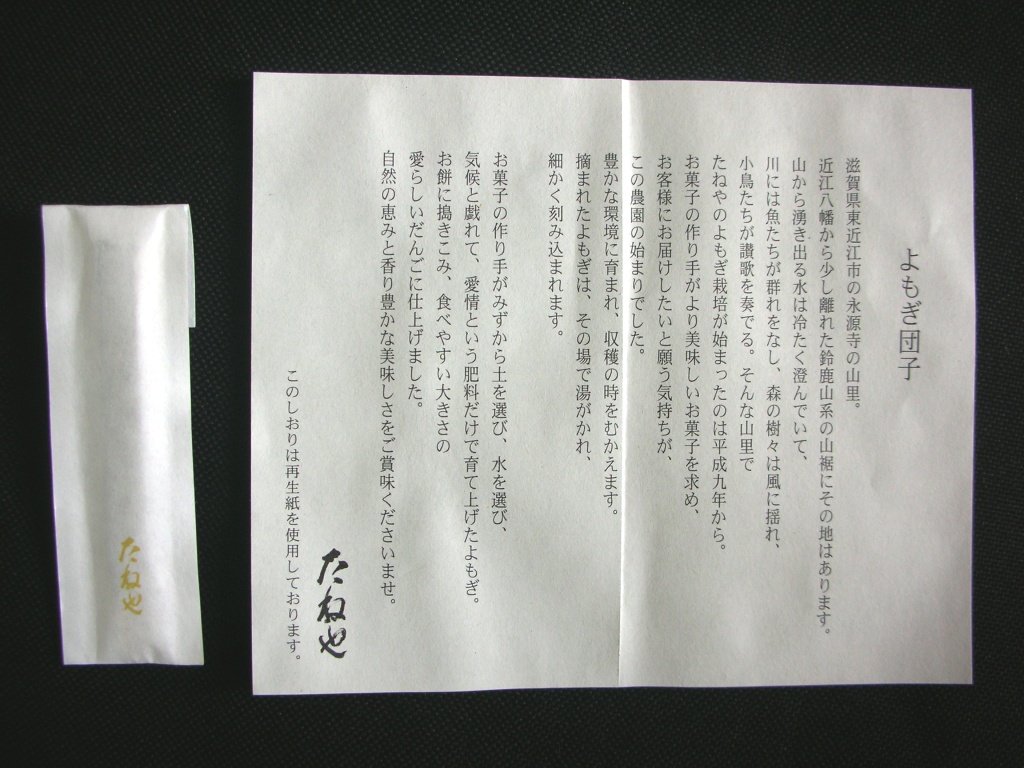 よもぎ団子
滋賀県東近江市の永源寺の山里。
近江八幡から少し離れた鈴鹿山系の山裾にその地はあります。
山から湧き出る水は冷たく澄んでいて、
川には魚たちが群れをなし、森の樹々は風に揺れ、
小鳥たちが讃歌を奏でる。そんな山里で
たねやのよもぎ栽培が始まったのは平成九年から。
お菓子の作り手がより美味しいお菓子を求め、
お客様にお届けしたいと願う気持ちが、
この農園の始まりでした。
豊かな環境に育まれ、収穫の時をむかえます。
摘まれたよもぎは、その場で湯がかれ、
細かく刻み込まれます。
お菓子の作り手がみずから土を選び、水を選び、
気候と戯れて、愛情という肥料だけで育て上げたよもぎ。
お餅に搗きこみ、食べやすい大きさの
愛らしいだんごに仕上げました。
自然の恵みと香り豊かな美味しさをご賞味くださいませ。
たねや
このしおりは再生紙を使用しております。
たねや